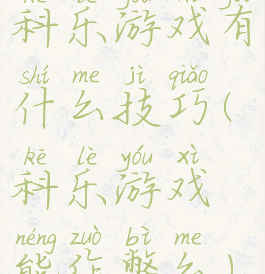 kē lè yóu xì yǒu
科乐游戏有
shí me jì qiǎo
什么技巧(
kē lè yóu xì
科乐游戏
néng zuò bì me
能作弊么)